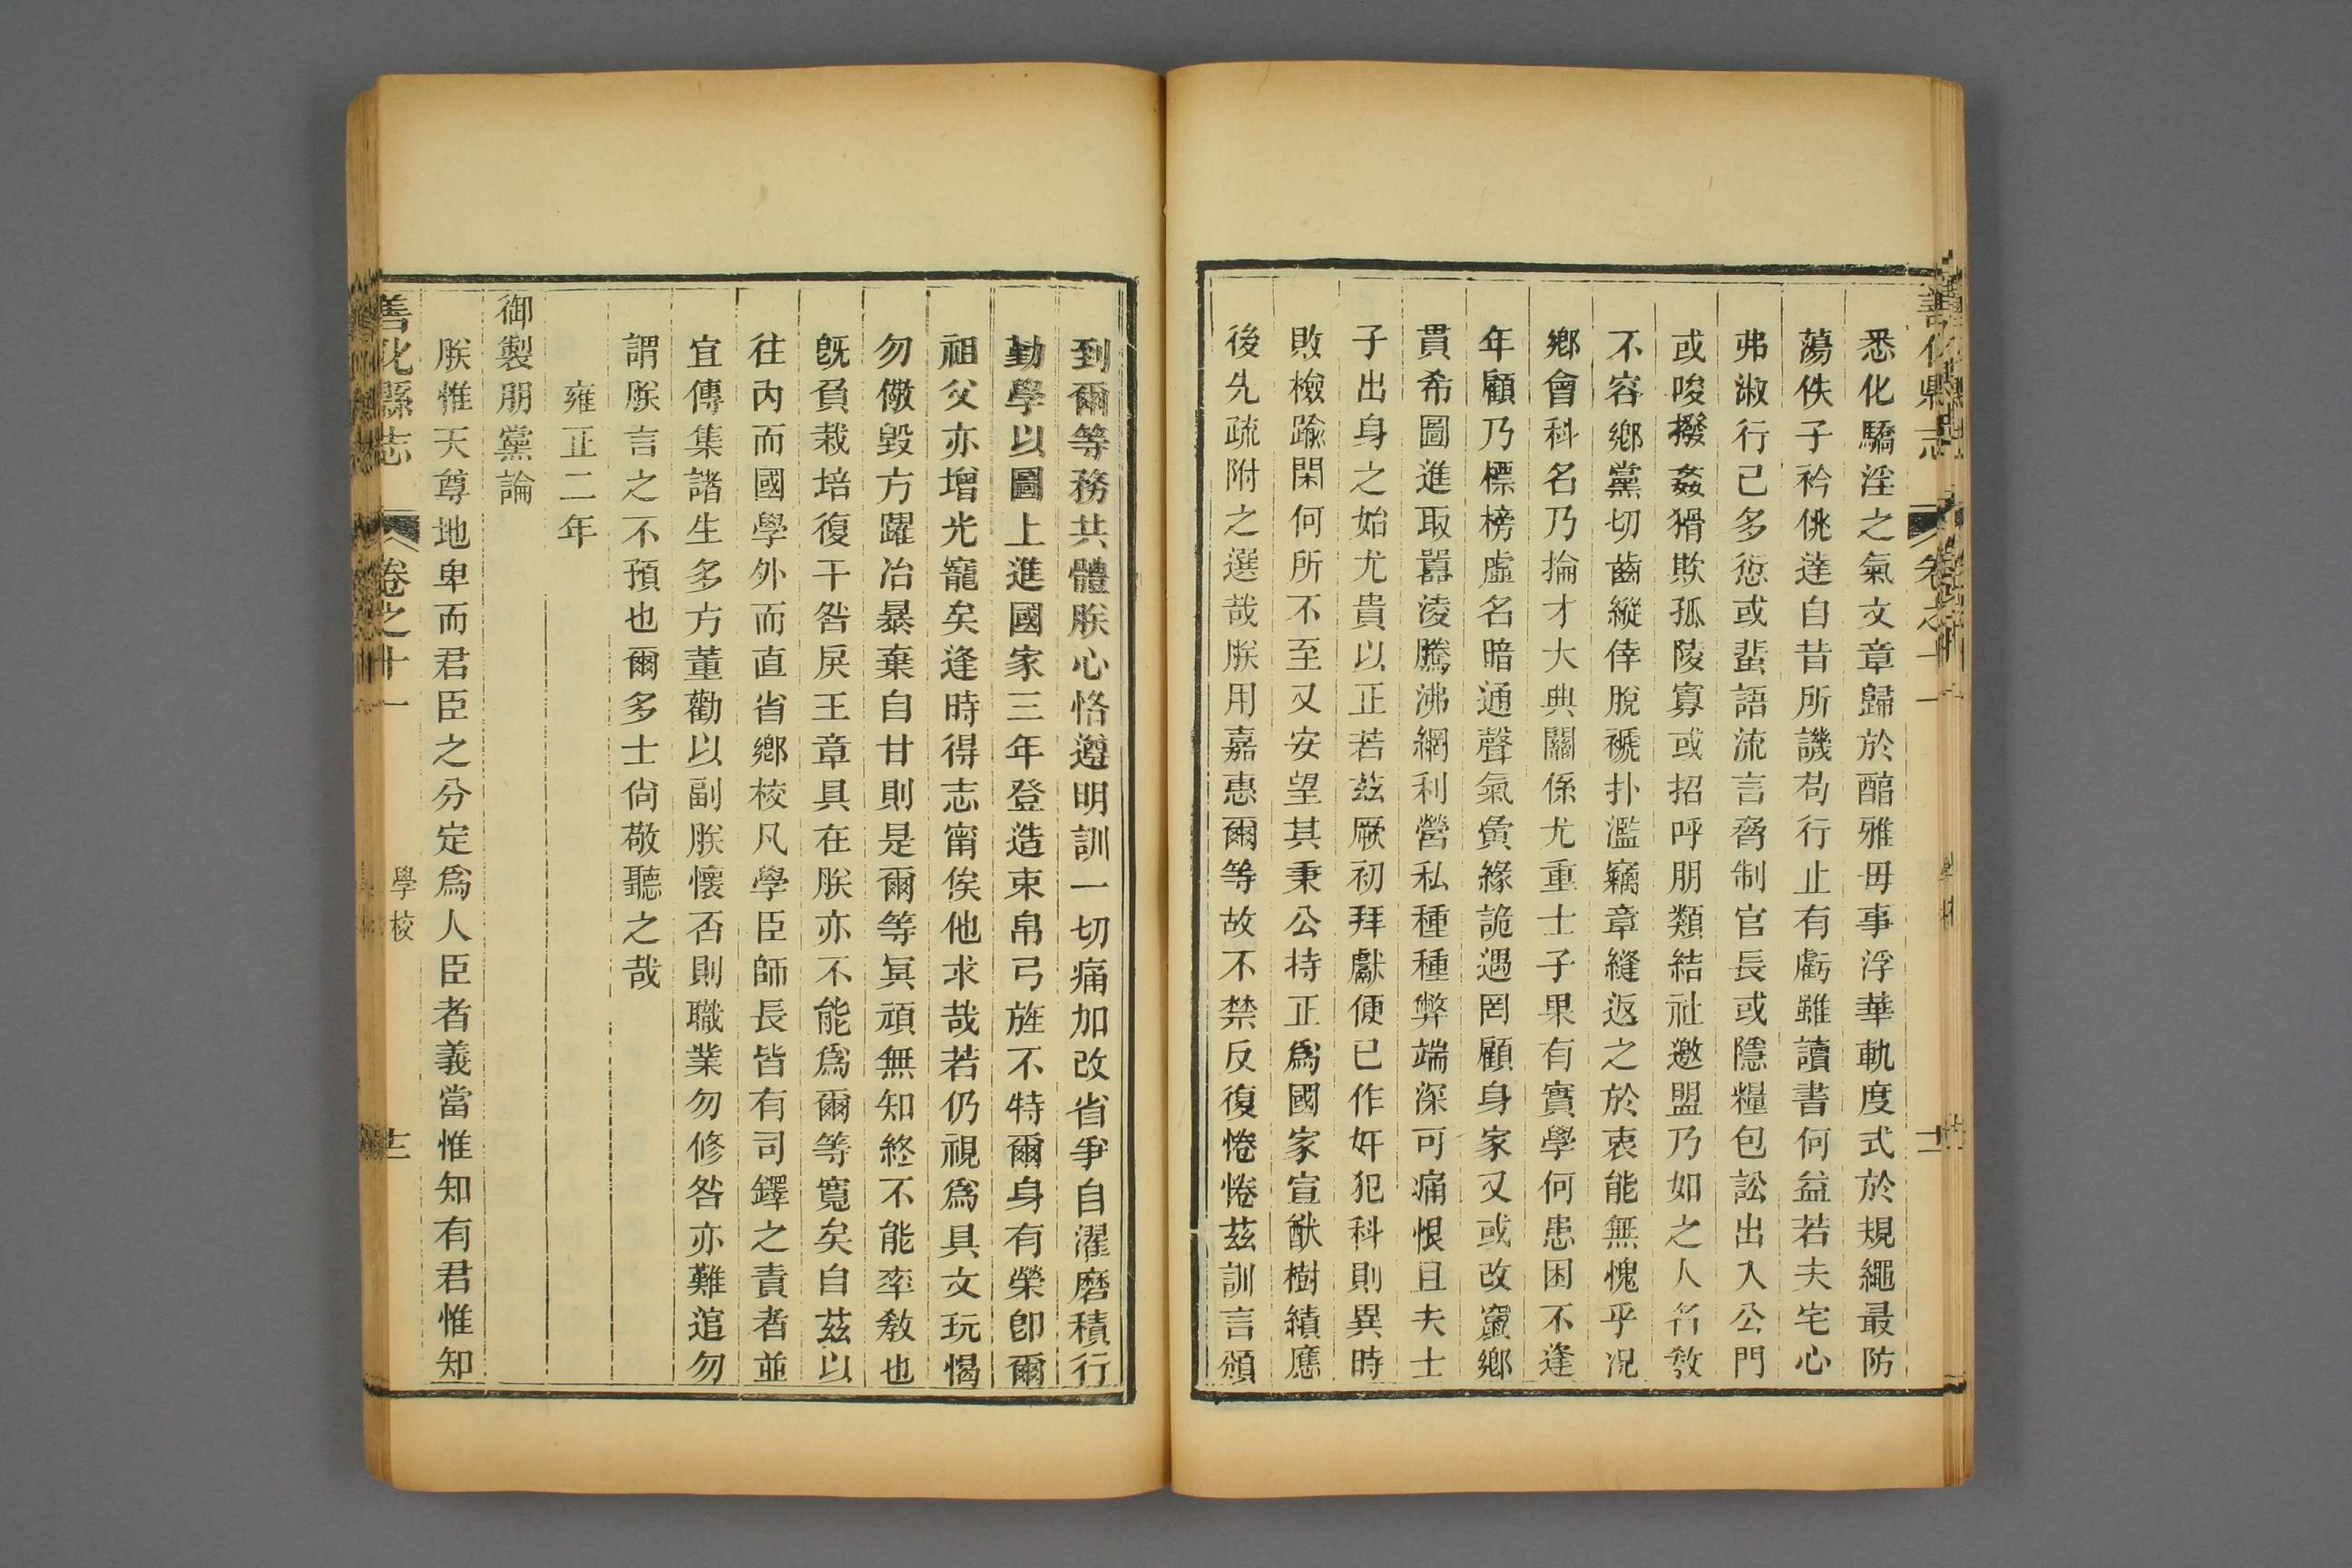 善化縣志
卷之十一
悉化驕淫之氣文章歸於醇雅毋事浮華軌度式於規繩最防
蕩佚子衿佻達自昔所譏苟行止有虧雖讀書何益若夫宅心
弗淑行己多愆或蜚語流言脅制官長或隱糧包訟出入公門
或唆撥姦猾欺孤陵寡或招呼朋類結社邀盟乃如之人名教
不容鄉黨切齒縱倖脫褫扑濫竊章縫返之於衷能無愧乎况
鄉會科名乃掄才大典關係尤重士子果有實學何患困不逢
年顧乃標榜虛名暗通聲氣夤緣詭遇罔顧身家又或改竄鄉
貫希圖進取囂淩騰沸網利營私種種弊端深可痛恨且夫士
子出身之始尤貴以正若茲厥初拜獻便已作奸犯科則異時
敗檢踰閑何所不至又安望其秉公持正爲國家宣猷樹績應
後先疏附之選哉朕用嘉惠爾等故不禁反復惓惓茲訓言頒
到爾等務共體朕心恪遵明訓一切痛加改省爭自濯磨積行
勤學以圖上進國家三年登造束帛弓旌不特爾身有榮卽爾
祖父亦增光寵矣逢時得志甯俟他求哉若仍視爲具文玩愒
勿儆毀方躍冶暴棄自甘則是爾等冥頑無知終不能率教也
旣負栽培復干咎戾王章具在朕亦不能爲爾等寬矣自茲以
往內而國學外而直省鄉校凡學臣師長皆有司鐸之責者並
宜傳集諸生多方董勸以副朕懷否則職業勿修咎亦難逭勿
謂朕言之不預也爾多士尙敬聽之哉
雍正二年
御製朋黨論
朕惟天尊地卑而君臣之分定爲人臣者義當惟知有君惟知
善化縣志
卷之十一
學校